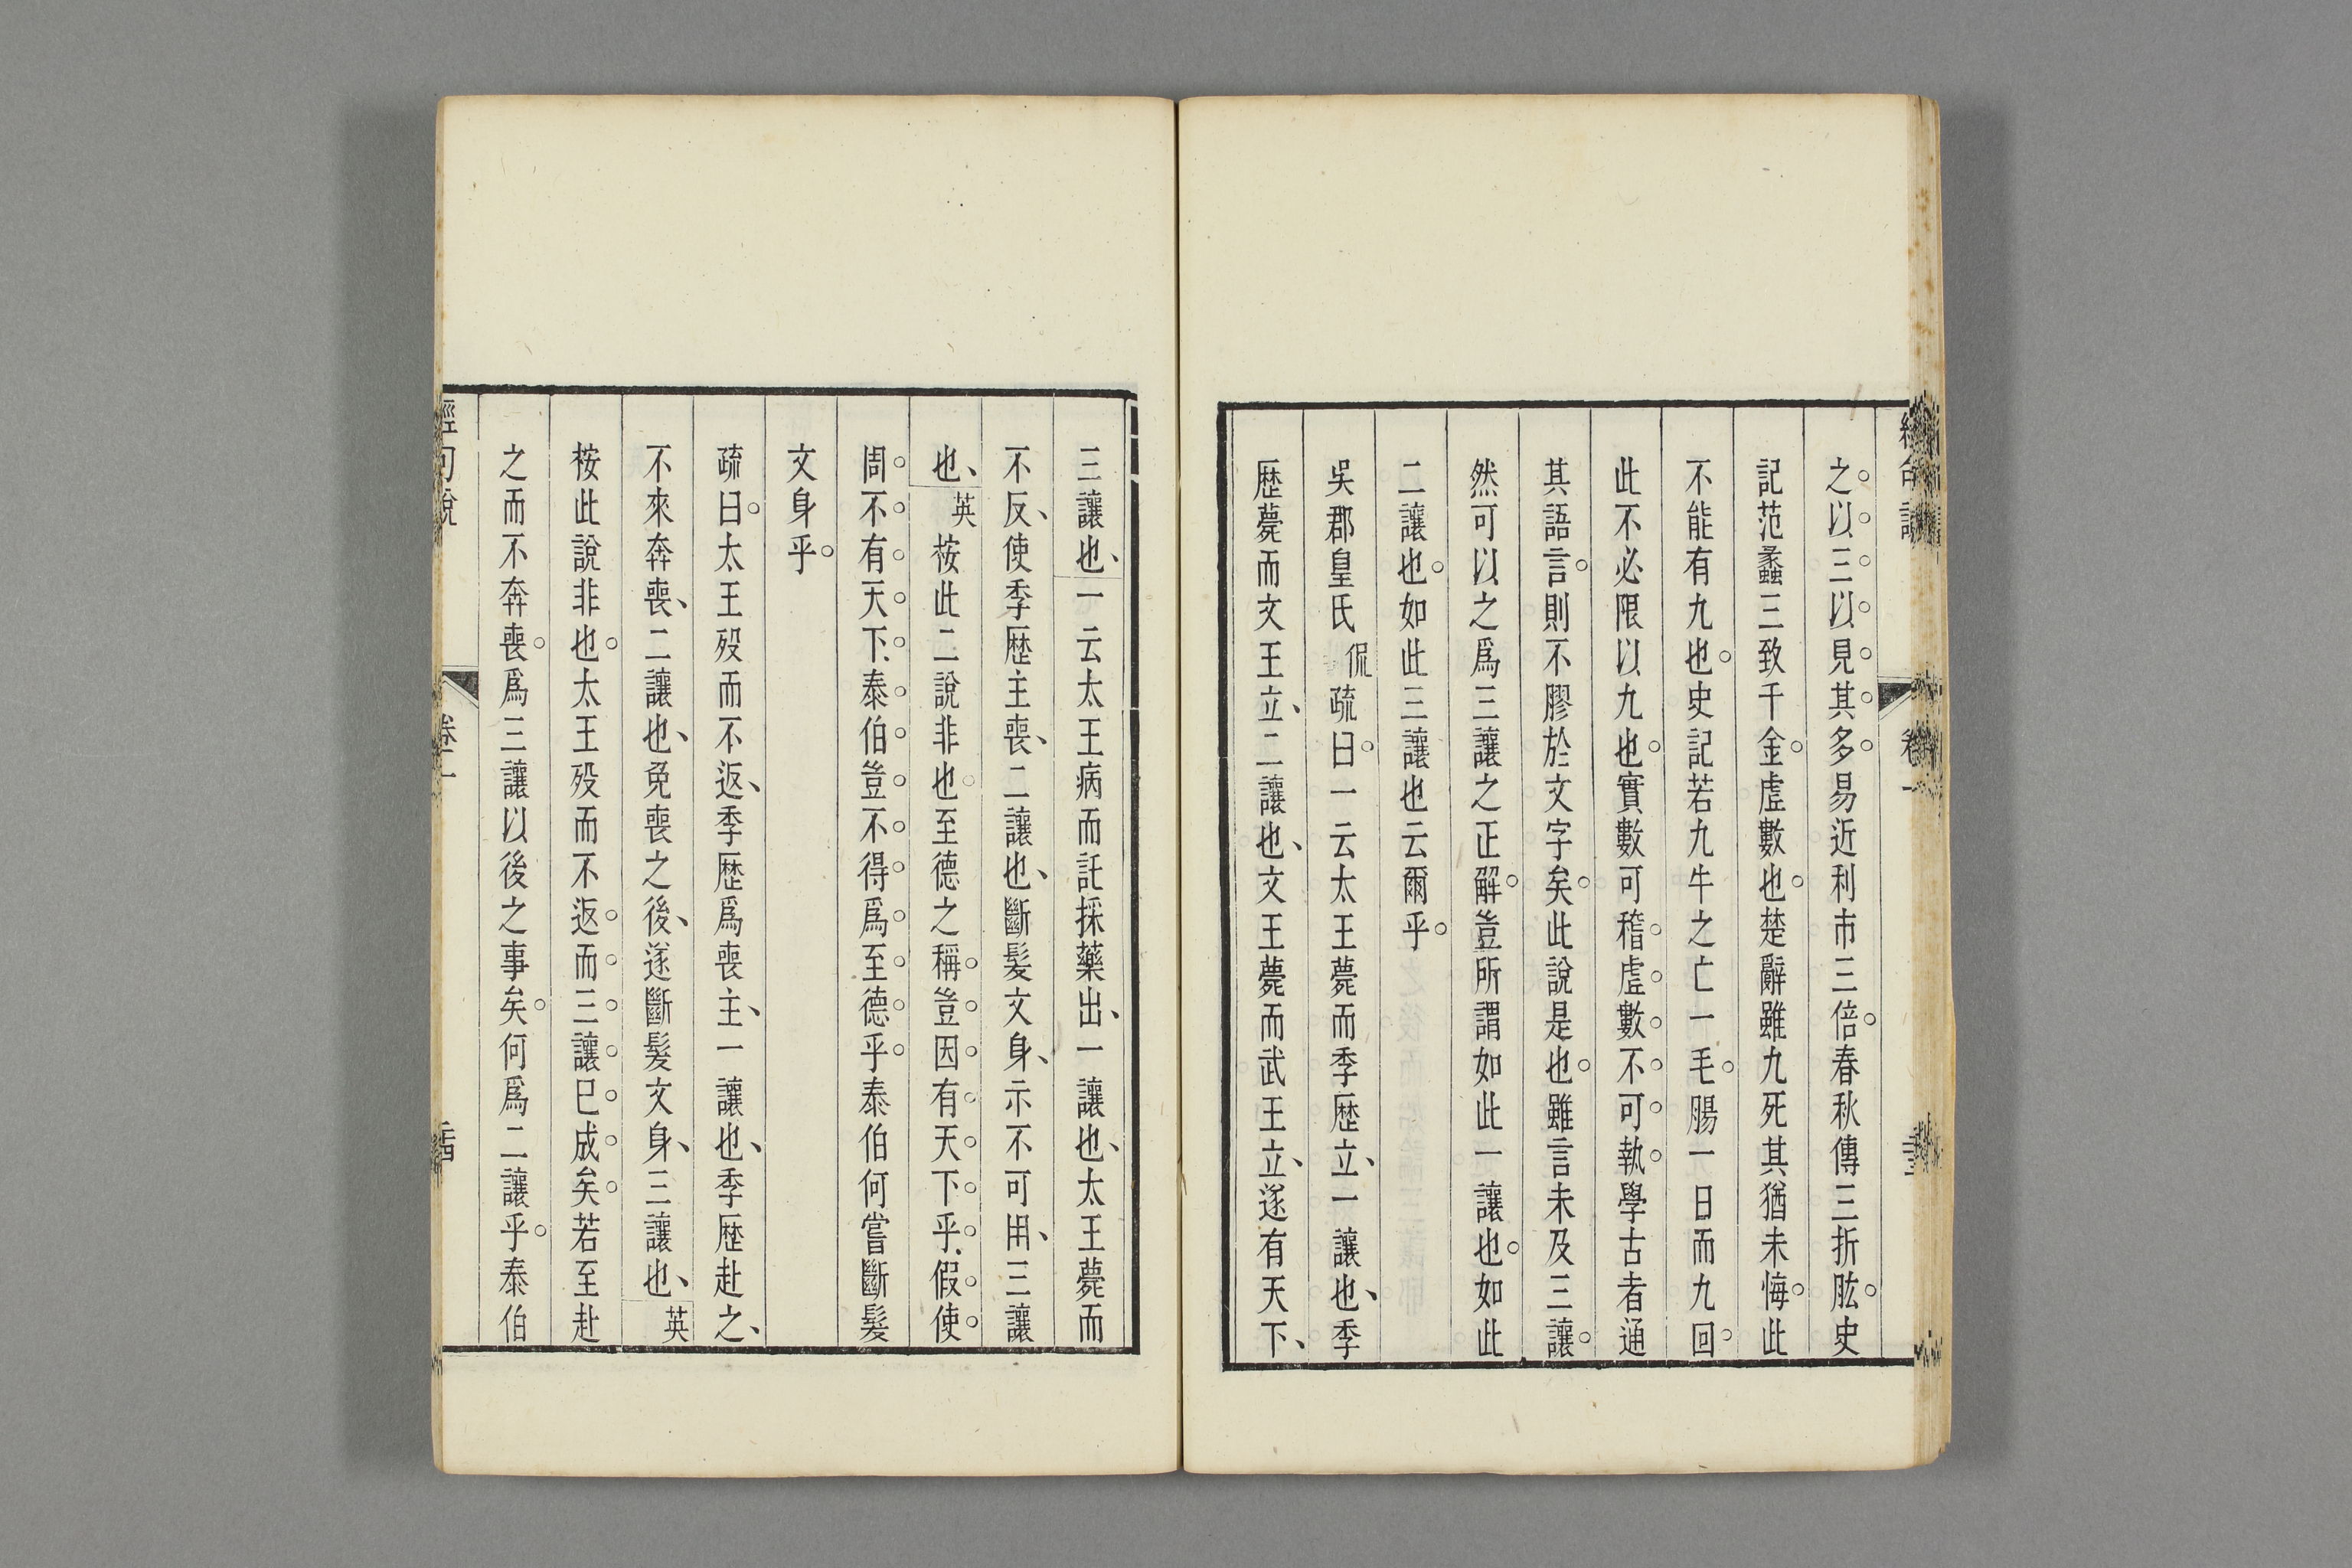 之以三以見其多易近利市三倍春秋傳三折肱史
記范蠡三致千金虛數也楚辭雖九死其猶未悔此
不能有九也史記若九牛之亡一毛腸一日而九回
此不必限以九也實數可稽虛數不可執學古者通
其語言則不膠於文字矣此說是也雖言未及三讓
然可以之爲三讓之正解豈所謂如此一讓也如此
二讓也如此三讓也云爾乎
吳郡皇氏侃疏曰一云太王薨而季歷立一讓也季
歷薨而文王立二讓也文王薨而武王立遂有天下
三讓也一云太王病而託採藥出一讓也太王薨而
不反使季歷主喪二讓也斷髮文身示不可用三讓
也英桉此二說非也至德之稱豈因有天下乎假使
周不有天下泰伯豈不得爲至德乎泰伯何嘗斷髮
文身乎
疏曰太王歿而不返季歷爲喪主一讓也季歷赴之
不來奔喪二讓也免喪之後遂斷髮文身三讓也英
桉此說非也太王歿而不返而三讓已成矣若至赴
之而不奔喪爲三讓以後之事矣何爲二讓乎泰伯
經句說